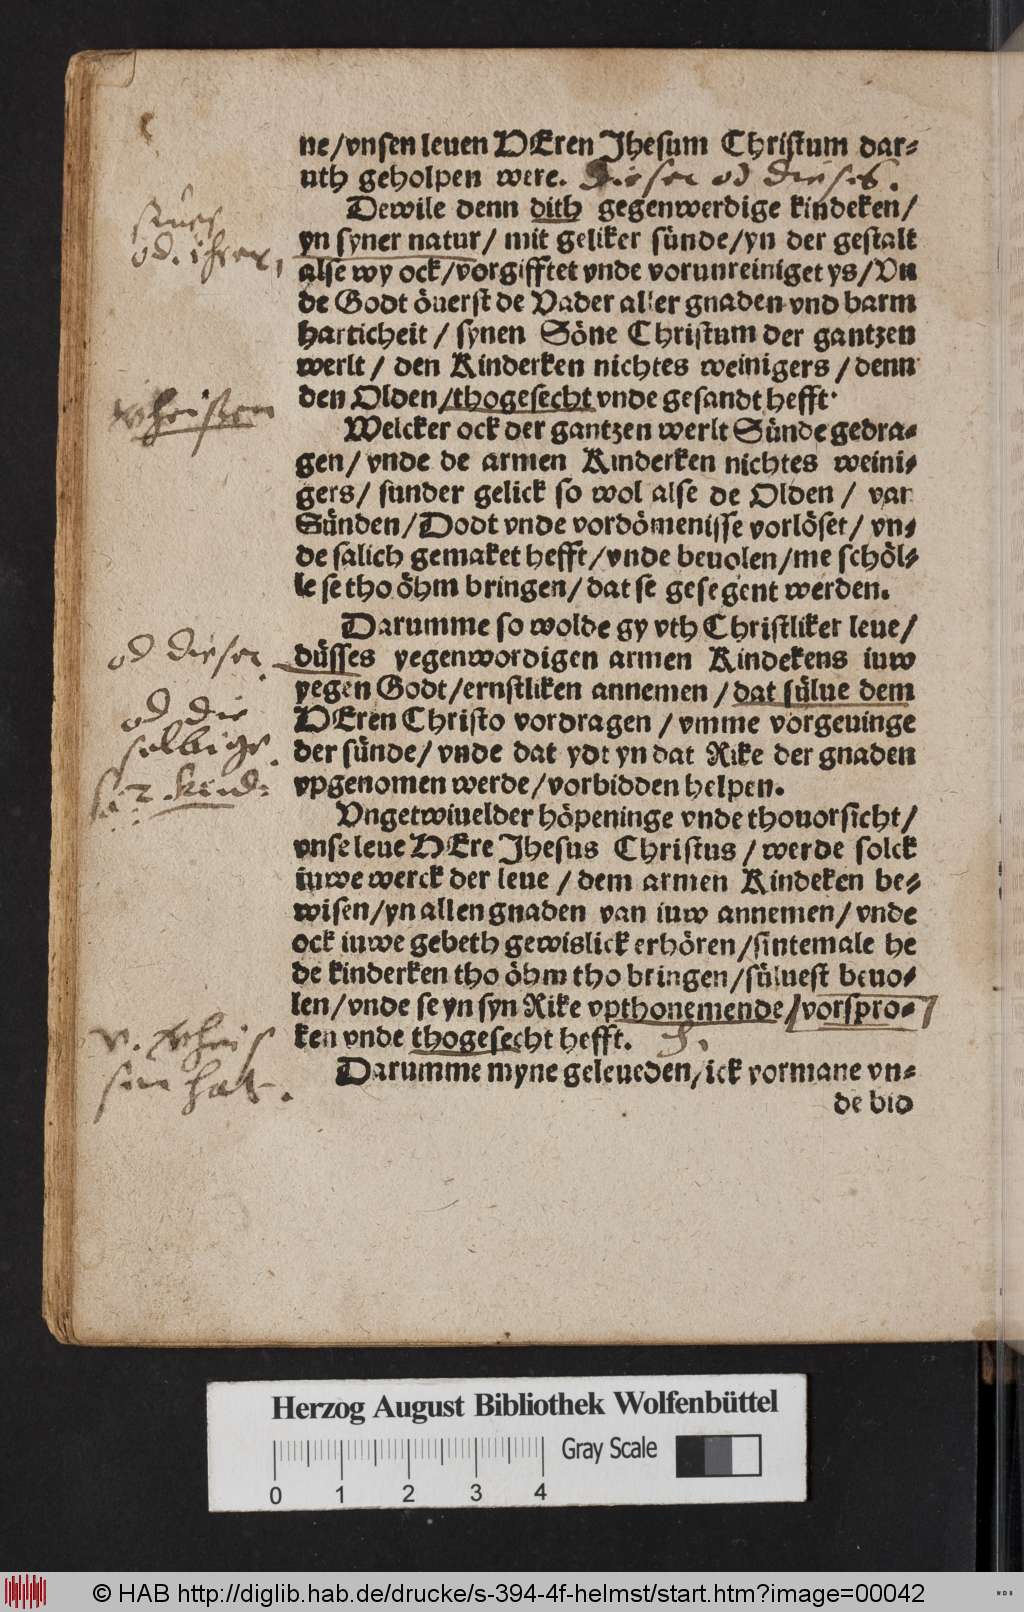 ne/vnsen leuen HEren Jhesum Christum dar-
uth geholpen were. dieser od dieses.
Dewile denn dith gegenwerdige kindeken/
yn syner natur/ mit geliker sünde/yn der gestalt
od. ihrer,
alse wy ock/vorgifftet vnde vorunreiniget ys/Vn
de Godt öuerst de Vader aller gnaden vnd barm
harticheit / synen Söne Christum der gantzen
werlt / den Kinderken nichtes weinigers / denn
den Olden/thogesecht vnde gesandt hefft.
Welcker ock der gantzen werlt Sünde gedra-
gen/ vnde de armen Kinderken nichtes weini-
gers/ sunder gelick so wol alse de Olden / van
Sünden/Dodt vnde vordömenisse vorlöset/ vn-
de salich gemaket hefft/vnde beuolen/me schöl-
le se tho öhm bringen/ dat se gesegent werden.
Darumme so wolde gy vth Christliker leue/
od dieser
düsses yegenwordigen armen Kindekens iuw
yegen Godt/ernstliken annemen / dat sülue dem
od die
selbige.
HEren Christo vordragen / vmme vorgeuinge
der sünde/ vnde dat ydt yn dat Rike der gnaden
vpgenomen werde/vorbidden helpen.
Vngetwiuelder höpeninge vnde thouorsicht/
vnse leue HEre Jhesus Christus / werde solck
iuwe werck der leue / dem armen Kindeken be-
wisen/yn allen gnaden van iuw annemen/ vnde
ock iuwe gebeth gewislick erhören/sintemale he
de kinderken tho öhm tho bringen/süluest beuo-
len/vnde se yn syn Rike vpthonemende/vorspro-
ken vnde thogesecht hefft.
hat.
Darumme myne geleueden/ick vormane vn-
de bid
Herzog August Bibliothek Wolfenbüttel
Gray Scale
0 1 2 3 4
© HAB http://diglib.hab.de/drucke/s-394-4f-helmst/start.htm?image=00042